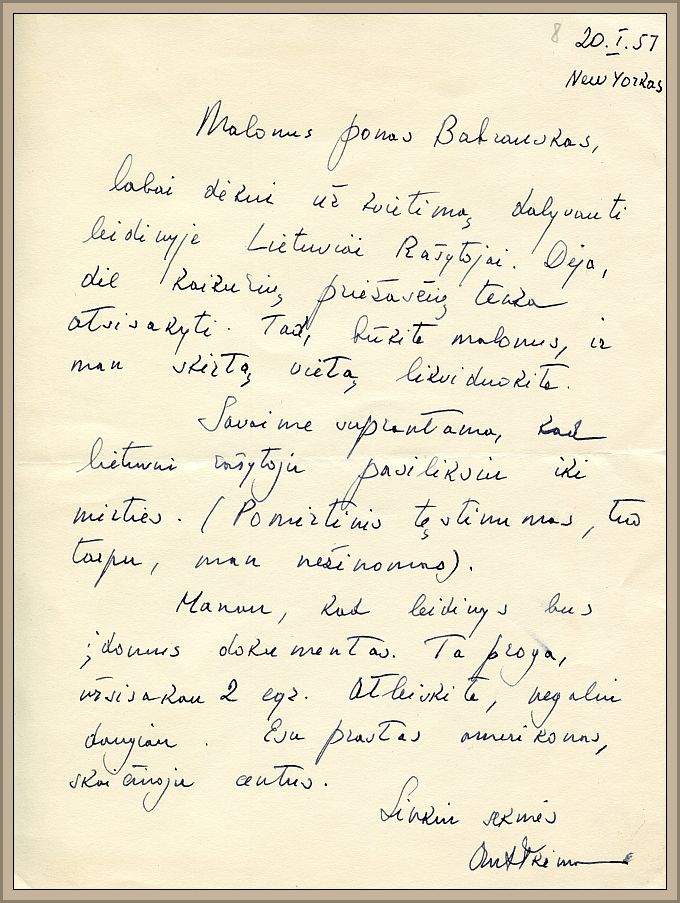 8 20.I.57
New Yorkas
Malonus ponas Babrauskas,
labai dėkui už kvietimą dalyvauti
leidinyje Lietuviai Rašytojai. Deja,
dėl kaikurių priežasčių tenka
atsisakyti. Tad, būkite malonus, ir
man skirtą vietą likviduokite.
Savaime suprantama, kad
lietuviu rašytoju pasiliksiu iki
mirties. (Pomirtinis tęstinumas, tuo
tarpu, man nežinomas).
Manau, kad leidinys bus
įdomus dokumentas. Ta proga,
užsisakau 2 egz. Atleiskite, negaliu
daugiau. Esu prastas amerikonas,
skaičiuoju centus.
Linkiu sėkmės